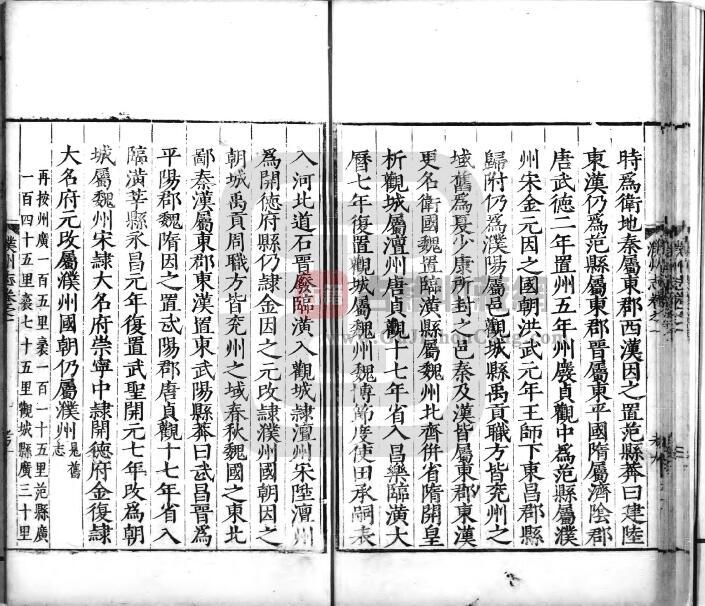 時爲衛地秦屬東郡西漢因之置范縣莽曰建陸
東漢仍爲范縣屬東郡晉屬東平國隋屬濟陰郡
唐武德二年置州五年州廢貞觀中爲范縣屬濮
州宋金元因之國朝洪武元年王師下東昌郡縣
歸附仍爲濮陽屬邑觀城縣禹貢職方皆兖州之
域舊爲夏少康所封之邑秦及漢皆屬東郡東漢
更名衛國魏置臨潢縣屬魏州北齊併省隋開皇
析觀城屬澶州唐貞觀十七年省入昌樂臨潢大
曆七年復置觀城屬魏州魏博節度使田承嗣表
入河北道石晉廢臨潢入觀城隸澶州宋陞澶州
爲開德府縣仍隸金因之元改隸濮州國朝因之
朝城禹貢周職方皆兖州之域春秋魏國之東北
鄙秦漢屬東郡東漢置東武陽縣莽曰武昌晉爲
平陽郡魏隋因之置武陽郡唐貞觀十七年省入
臨潢莘縣永昌元年復置武聖開元七年改爲朝
城屬魏州宋隸大名府崇寧中隸開德府金復隸
大名府元改屬濮州國朝仍屬濮州 見舊志
再按州廣一百五里袤一百一十五里范縣廣
一百四十五里袤七十五里觀城縣廣三十里
濮州志卷之一